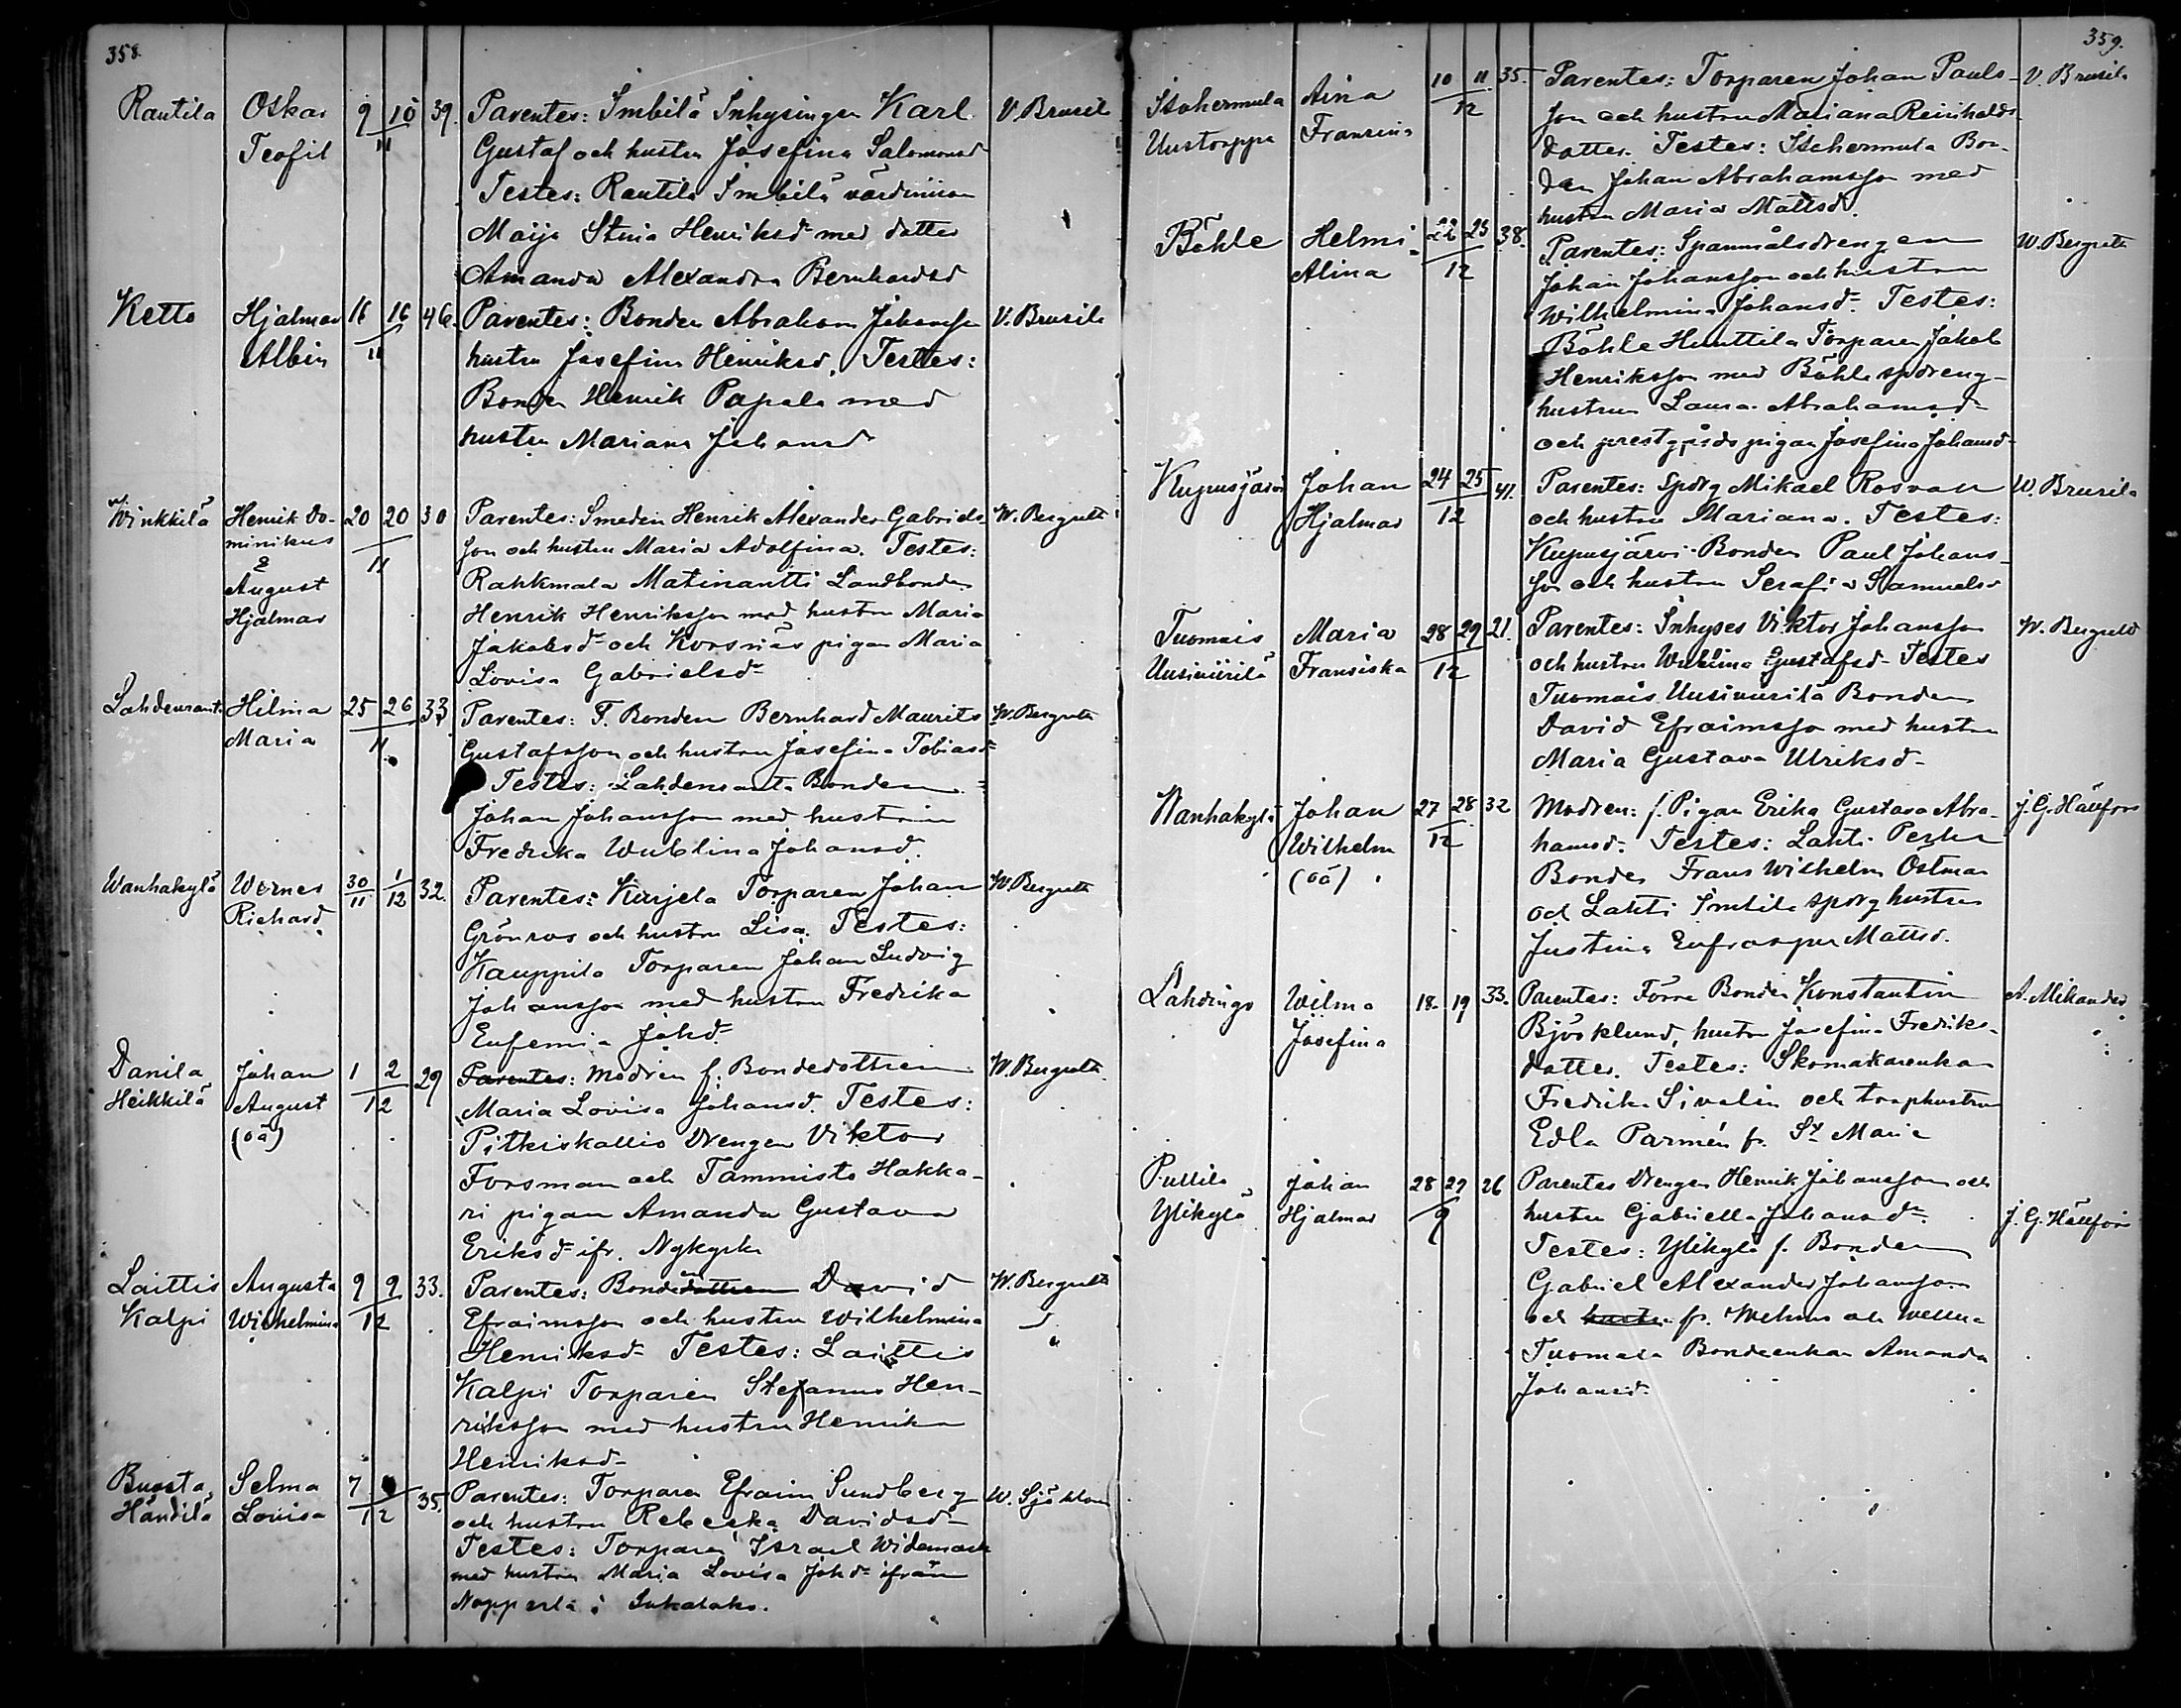 358.
Rautila Oskar 9 10 39. Parentes: Imbilä Inhysingen Karl V. Brusila
Teofil 11 Gustaf och hustru Josefina Salomonsd
Testes: Rautila Imbilä värdinnan
Maija Stina Henriksd med dotter
Amanda Alexandra Bernhardsd
Ketto Hjalmar 16 16 46. Parentes: Bonden Abraham Johansson V. Brusila
Albin 11 hustru Josefina Henriksd. Testes:
Bonden Henrik Papala med
hustru Mariana Johansd
Winkkilä Henrik Do- 20 20 30 Parentes: Smeden Henrik Alexander Gabriels- W. Bergroth
minikus 11 son och hustru Maria Adolfina. Testes:
&
August Rahkmala Matinantti Landbonden
Hjalmar Henrik Henriksson med hustru Maria
Jakobsd och Korsnäs pigan Maria
Lovisa Gabrielsd
Lahdenranta Hilma 25 26 33 Parentes: F. Bonden Bernhard Maurits W. Bergroth
Maria 11 Gustafsson och hustru Josefina Tobiasd
Testes: Lahdenranta Bonden
Johan Johansson med hustrun
Fredrika Wublina Johansd.
Wanhakylä Werner 30/11 1/12 32. Parentes: Kurjela Torparen Johan W. Bergroth
Richard Grönroos och hustru Lisa. Testes:
Kauppila Torparen Johan Ludvig
Johansson med hustru Fredrika
Eufemia Johd
Danila Johan 1 2 29 Parentes: Modren f. Bondedottren W. Bergroth
Heikkilä August 12 Maria Lovisa Johansd. Testes:
(oä) Pitkiskallio Drengen Viktor
Forsman och Tammisto Hakka-
ri pigan Amanda Gustava
Eriksd ifr. Nykyrka
Laittis Augusta 9 9 33. Parentes: Bondedottren David W. Bergroth
Kalpi Wilhelmina 12 Efraimsson och hustru Wilhelmina
Henriksd Testes: Laittis
Kalpi Torparen Stefanus Hen-
riksson med hustru Henrika
Henriksd
Buosta, Selma 7 35. Parentes: Torparen Efraim Sundberg W. Sjöblom
Händilä Lovisa 12 och hustru Rebecka Davidsd
Testes: Torparen Israel Widemark
med hustru Maria Lovisa Johd ifrån
i
359.
Aina 10 11 35. Parentes: Torparen Johan Pauls- V. Brusila
Uustorppa Fransina 12 son och hustru Mariana Reinholds-
dotter. Testes: Bon-
den Johan Abrahamsson med
hustru Maria Mattsd.
Böhle Helmi 22 25 38. Parentes: Spannmålsdrengen W. Bergroth
Alina 12 Johan Johansson och hustru
Wilhelmina Johansd Testes:
Böhle Huuttila Torparen Jakob
Henriksson med Böhle spdreng-
hustrun Laura Abrahamsd
och prestgårds pigan Josefina Johansd
Kupusjärvi Johan 24 25 41. Parentes: Spdrg Mikael Rosvall W. Brusila
Hjalmar 12 och hustru Mariana. Testes:
Kupusjärvi Bonden Paul Johans-
son och hustru Serafia Samuelsd
Tuomois Maria 28 29 21. Parentes: Inhyses Viktor Johansson W. Bergroth
Uusiniirilä Fransiska 12 och hustru Wublina Gustafsd Testes
Tuomois Uusiniirilä Bonden
David Efraimsson med hustru
Maria Gustava Ulriksd
Wanhakylä Johan 27 28 32 Modren: f. Pigan Erika Gustava Abra- J. G. Hällfors
Wilhelm 12 hamsd. Testes: Lahti
(oä) Bonden Frans Wilhelm Östman
och Lahti Imbilä spdrg hustru
Justina Eufrosyna Mattsd.
Lahdingo Wilma 18 19 33. Parentes: Förre Bonden Konstantin A. Mikander
Josefina Björklund, hustru Josefina Fredriks-
dotter. Testes: Skomakarenkan
Fredrika Sivelin och torphustru
Edla Parmén fr. St Marie
Pullila Johan 28 29 26 Parentes Drengen Henrik Johansson och
Ylikylä Hjalmar 9 hustru Gabriella Johansd. J. G. Hällfors
Testes: Ylikylä f. Bonden
Gabriel Alexander Johansson
och hustru fr.
Tuomala Bondeenkan Amanda
Johansd.